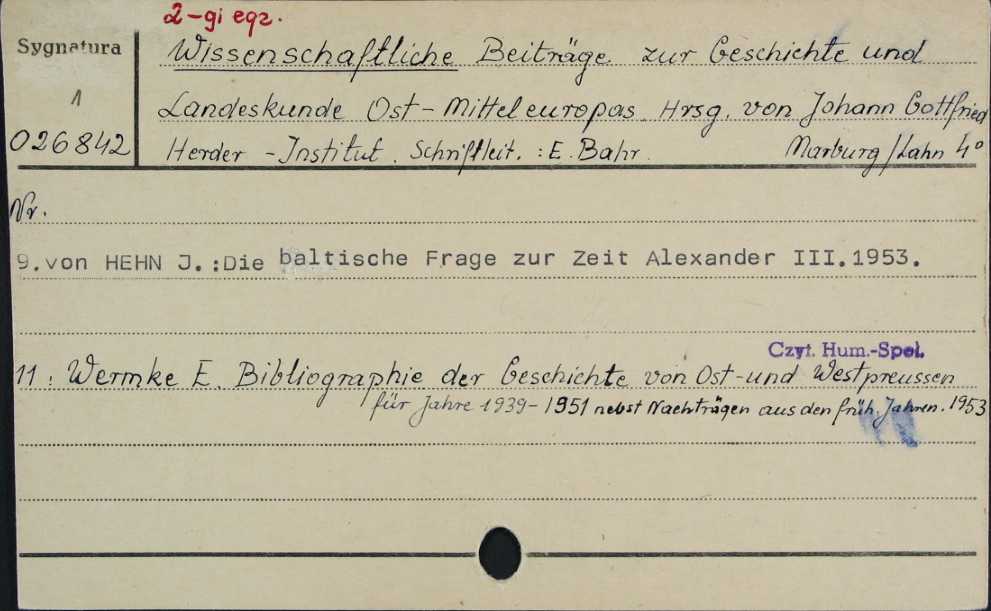 2-gi egz.
Sygnatura
Wissenschaftliche Beiträge zur Geschichte und
1
Landeskunde Ost-Mitteleuropas. Hrsg. von Johann Gottfried
026842
Herder-Institut. Schriftleit.: E. Bahr. Marburg/Lahn 4°
Nr.
9.von HEHN J.:Die baltische Frage zur Zeit Alexander III.1953.
Czyt. Hum.-Społ.
11: Wermke E. Bibliographie der Geschichte von Ost-und Westpreussen
für Jahre 1939-1951 nebst Nachträgen aus den früh. Jahren. 1953